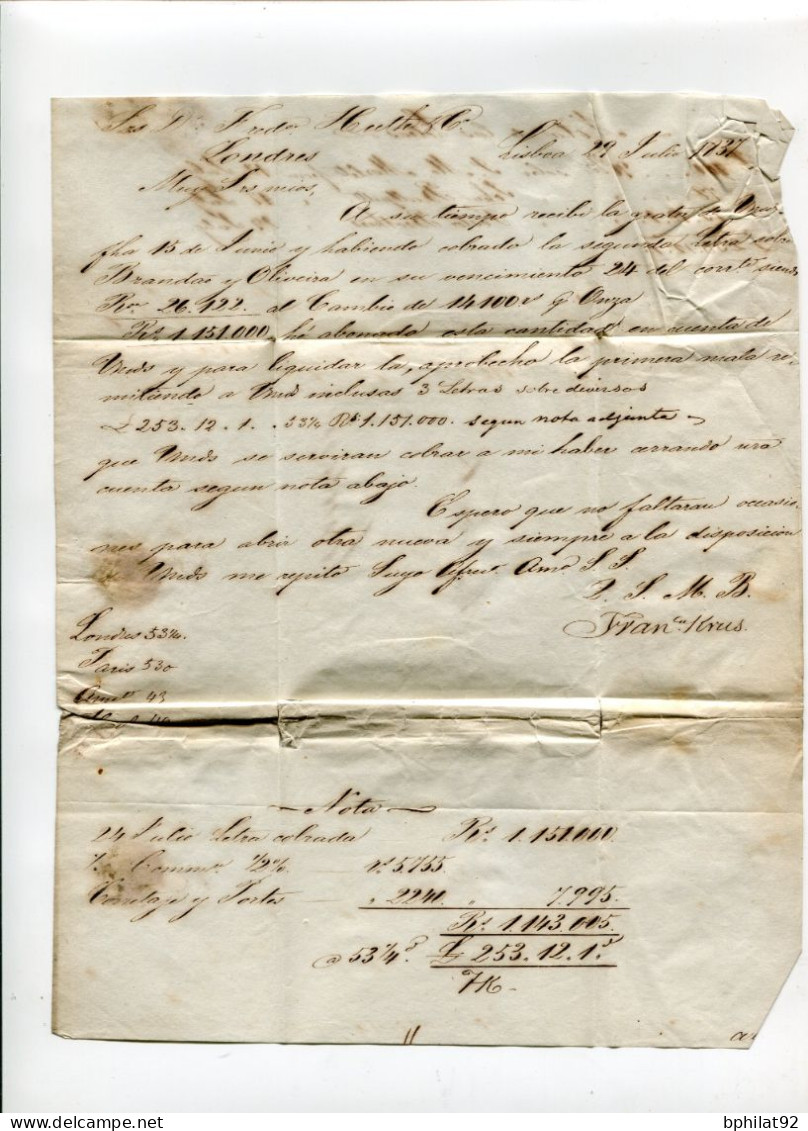 Srs Dn Fredo Huth & Co
Londres Lisboa 29 Julio 1837
Muy Srs mios,
A su tiempo recibi la grata de Vms
fha 15 de Junio y habiendo cobrado la segunda Letra sobre
Brandao y Oliveira en su vencimiento 24 del corrte siendo
Rvn 26.122 al Cambio de 14100 rs Onza
Rs 1.151.000 hé abonado esta cantidad en cuenta de
Vmds y para liquidar la, aprobecho la primera mala re-
mitiendo a Vmds inclusas 3 Letras sobre diversos
£ 253.12.1. 53¼ Rs 1.151.000. segun nota adjunta
que Vmds se serviran cobrar a mi haber cerrando
cuenta segun nota abajo.
Espero que no faltaran occasio-
nes para abrir otra nueva y siempre a la disposicion
Vmds me repito Suyo Afect. Amo S. S.
Q. S. M. B.
Franco Krus.
Londres 53¼.
Paris 530
Amsm 43
Nota
24 Julio Letra cobrada Rs 1.151.000.
Commn ½% rs 5.755
Corretaje y Portes " 2240. " 7.995.
Rs 1.143.005.
a 53¼ £ 253.12.1.
FK
bphilat92